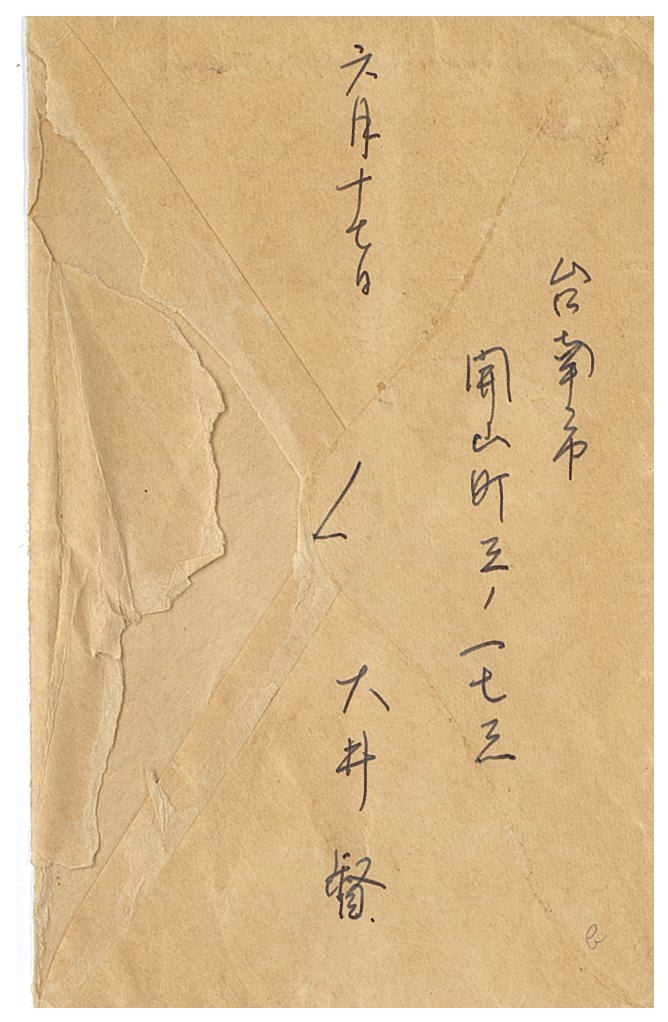 台南市
開山町三ノ一七三
六月十七日
大井 督